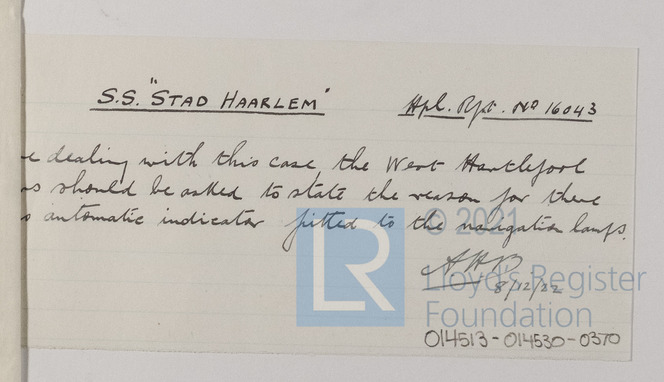 S.S. "STAD HAARLEM" Hpl. Rpt. No 16043
e dealing with this case the West Hartlepool
s should be asked to state the reason for there
o automatic indicator fitted to the navigation lamps.
© 2021
LR
Lloyd's Register
8/12/32
Foundation
014513-014530-0370